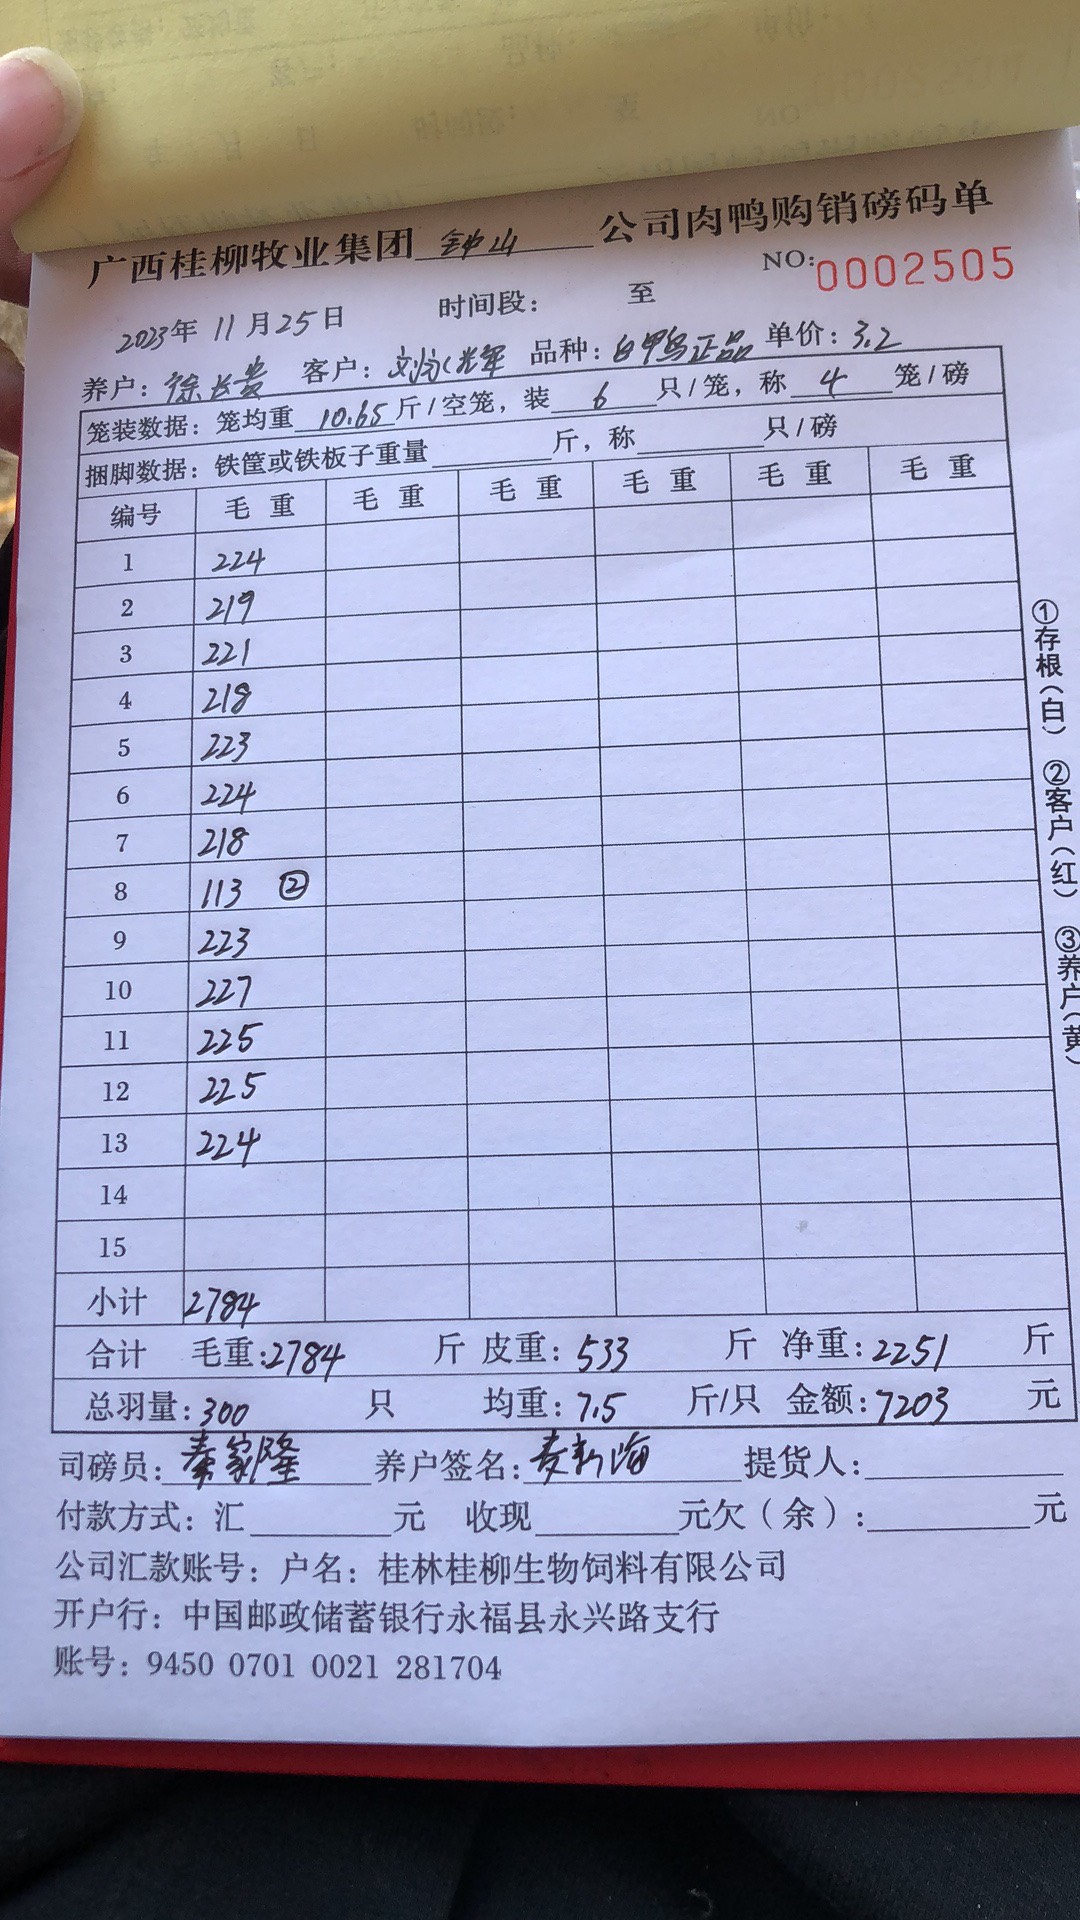 广西桂柳牧业集团钟山公司肉鸭购销磅码单
NO:0002505
2023年11月25日 时间段: 至
养户:徐长贵 客户:刘 辉 品种:白甲鸟正品 单价:3.2
笼装数据:笼均重10.65斤/空笼,装6只/笼,称4笼/磅
捆脚数据:铁筐或铁板子重量 斤,称 只/磅
编号 毛重 毛重 毛重 毛重 毛重 毛重
1 224
2 219
3 221
4 218
5 223
6 224
7 218
8 113 ②
9 223
10 227
11 225
12 225
13 224
14
15
小计 2784
合计 毛重:2784 斤 皮重:533 斤 净重:2251 斤
总羽量:300 只 均重:7.5 斤/只 金额:7203 元
司磅员:秦家隆 养户签名:麦新海 提货人:
付款方式:汇 元 收现 元欠(余): 元
公司汇款账号:户名:桂林桂柳生物饲料有限公司
开户行:中国邮政储蓄银行永福县永兴路支行
账号:9450 0701 0021 281704
①存根(白) ②客户(红) ③养户(黄)